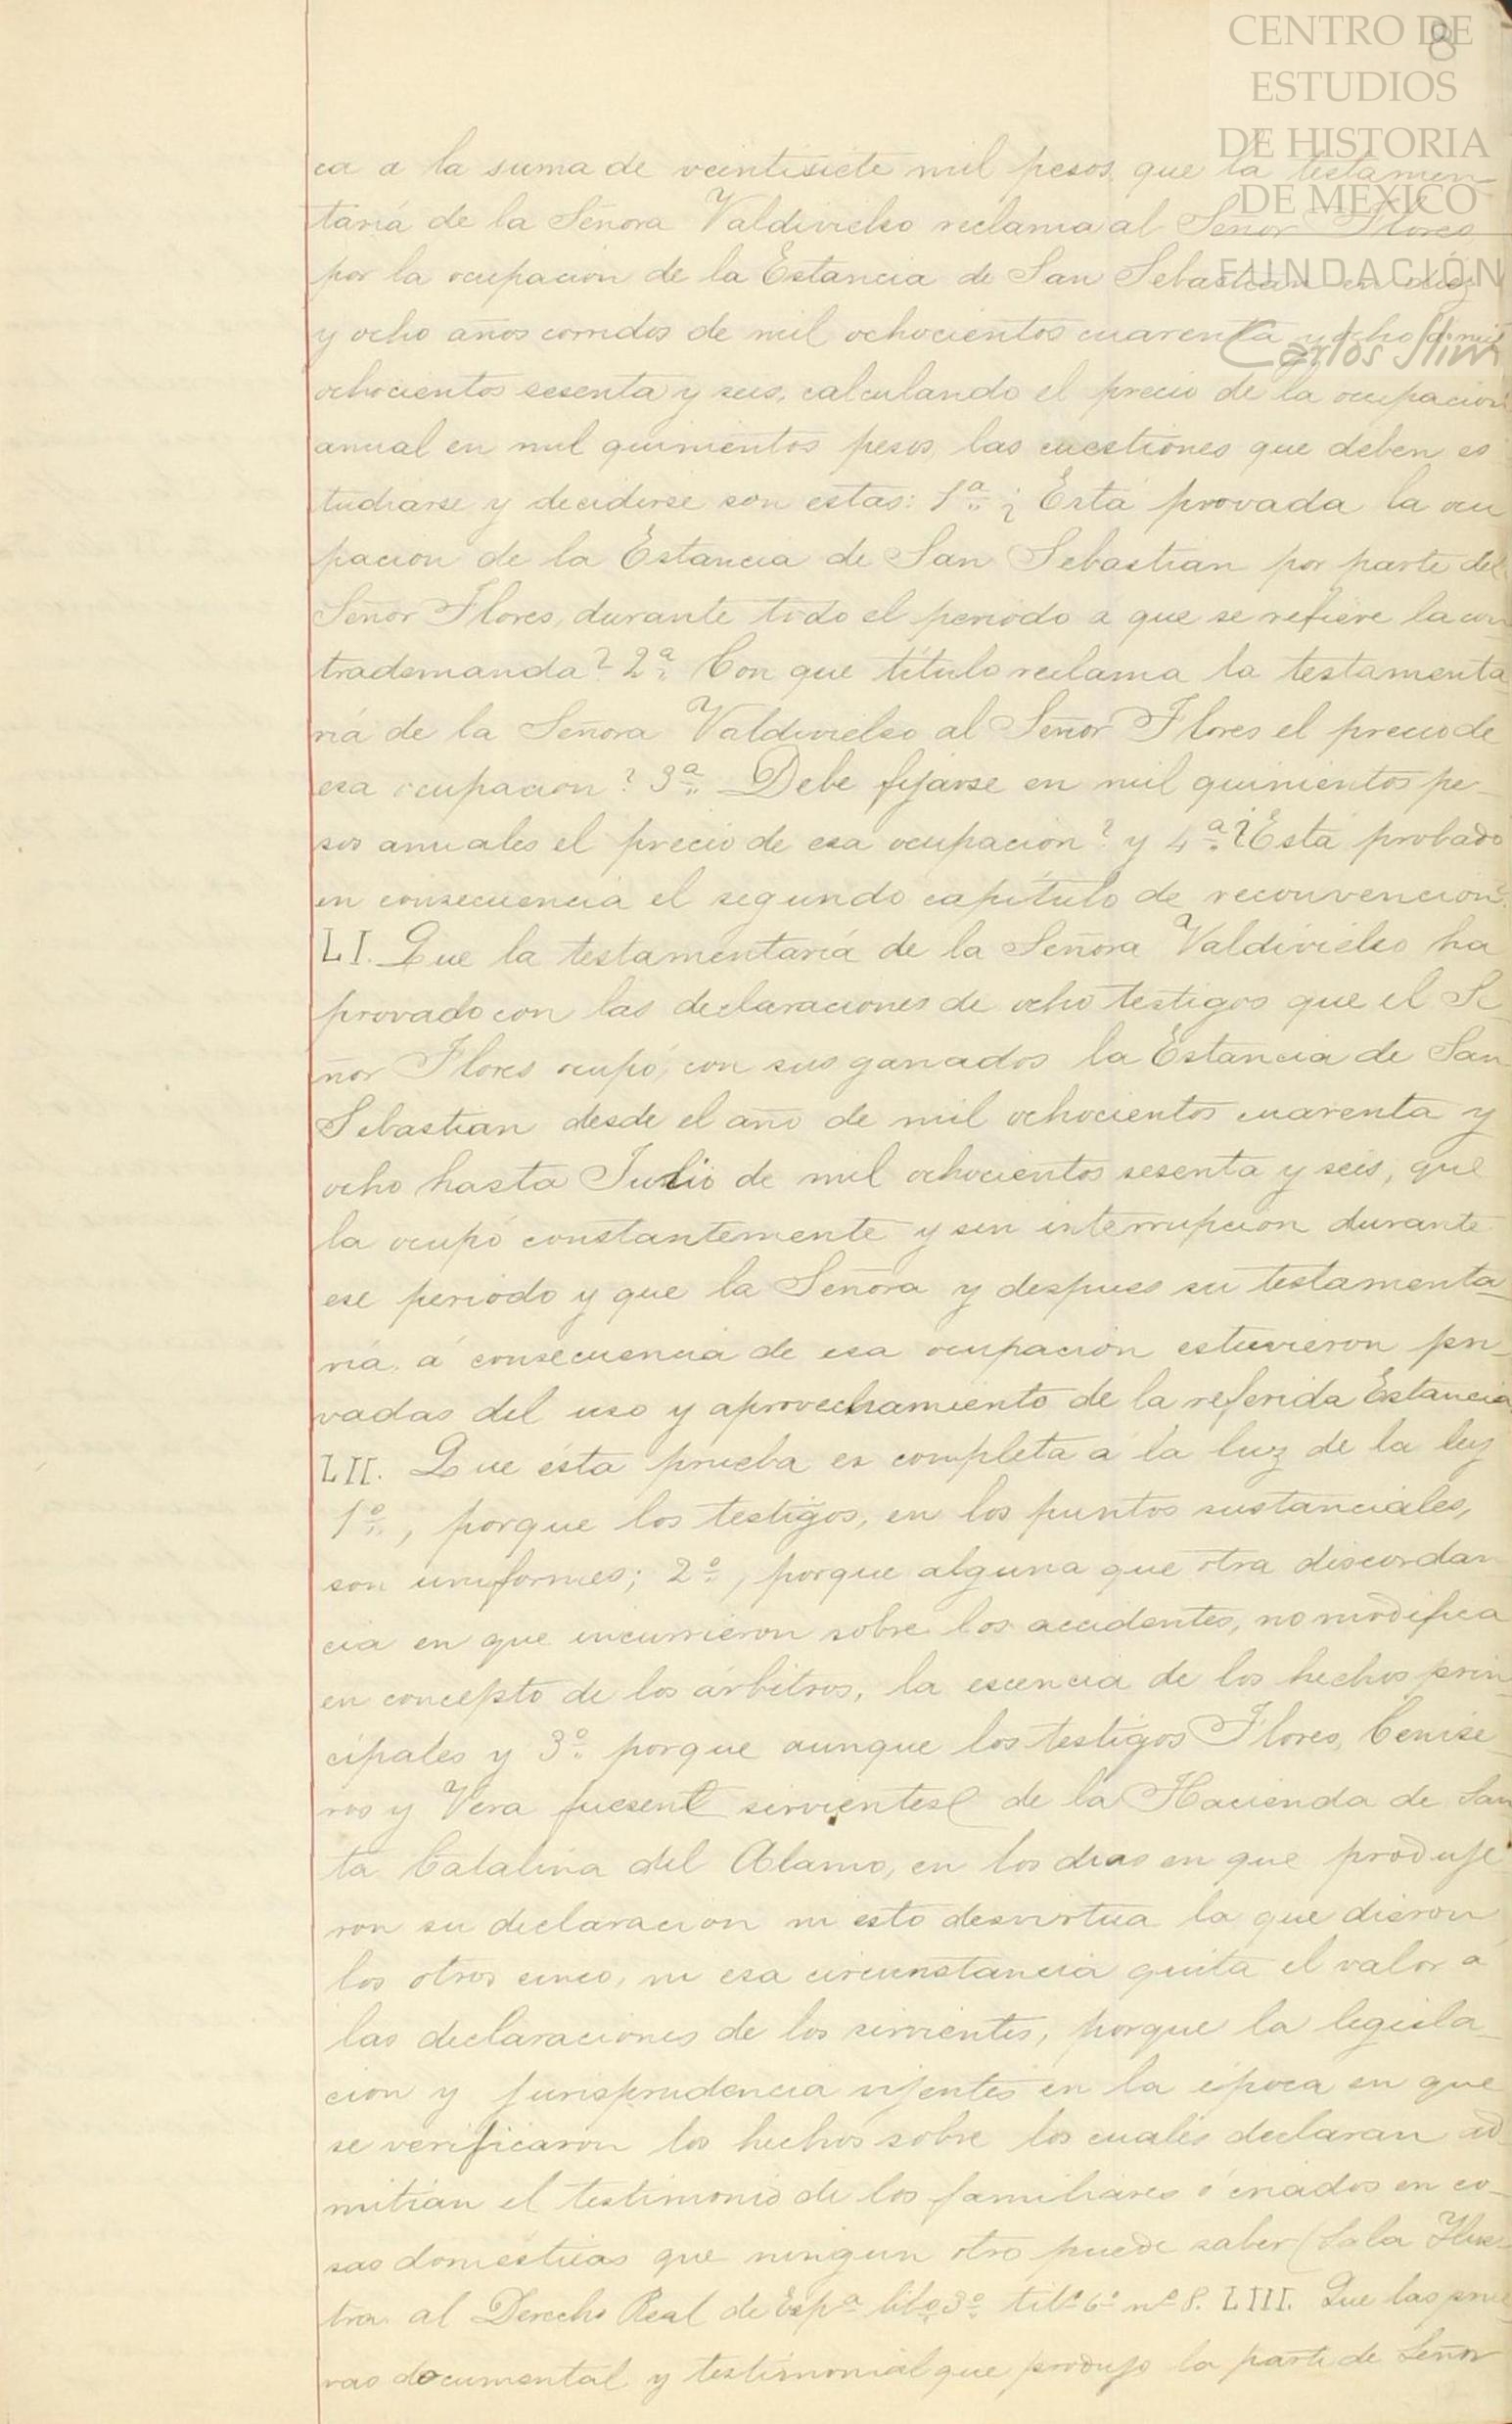 CENTRO DE
ESTUDIOS
DE HISTORIA
DE MÉXICO
FUNDACIÓN
Carlos Slim
8
ca a la suma de veintisiete mil pesos, que la testamen-
taría de la Señora Valdivielso reclama al Señor Flores
por la ocupacion de la Estancia de San Sebastian en diez
y ocho años corridos de mil ochocientos cuarenta y ocho a mil
ochocientos sesenta y seis, calculando el precio de la ocupacion
anual en mil quinientos pesos, las cuestiones que deben es
tudiarse y decidirse son estas: 1ª ¿Está provada la ocu
pacion de la Estancia de San Sebastian por parte del
Señor Flores, durante todo el periodo a que se refiere la con
trademanda? 2ª Con que título reclama la testamenta
ria de la Señora Valdivielso al Señor Flores el precio de
esa ocupacion? 3ª Debe fijarse en mil quinientos pe-
sos anuales el precio de esa ocupacion? y 4ª ?Está probado
en consecuencia el segundo capítulo de reconvencion?
LI. Que la testamentaría de la Señora Valdivielso ha
provado con las declaraciones de ocho testigos que el Se
ñor Flores ocupó, con sus ganados la Estancia de San
Sebastian desde el año de mil ochocientos cuarenta y
ocho hasta Julio de mil ochocientos sesenta y seis, que
la ocupó constantemente y sin interrupcion durante
ese periodo y que la Señora y despues su testamenta-
ria, á consecuencia de esa ocupacion estuvieron pri-
vadas del uso y aprovechamiento de la referida Estancia
LII. Que ésta prueba es completa a la luz de la ley
1º, porque los testigos, en los puntos sustanciales,
son uniformes; 2º, porque alguna que otra discordan
cia en que incurrieron sobre los accidentes, no modifica
en concepto de los árbitros, la esencia de los hechos prin
cipales y 3º porque aunque los testigos Flores, Cenise
ros y Vera fuesen sirvientes de la Hacienda de San
ta Catalina del Alamo, en los dias en que produje
ron su declaracion ni esto desvirtua la que dieron
los otros cinco, ni esa circunstancia quita el valor a
las declaraciones de los sirvientes, porque la legisla-
cion y jurisprudencia vijentes en la época en que
se verificaron los hechos sobre los cuales declaran ad
mitian el testimonio de los familiares ó criados en co-
sas domésticas que ningun otro puede saber (Sala Ilus-
tra. al Derecho Real de Espª libº 3º titº 6º nº 8. LIII. Que las prue
vas documental y testimonial que produjo la parte de Señor